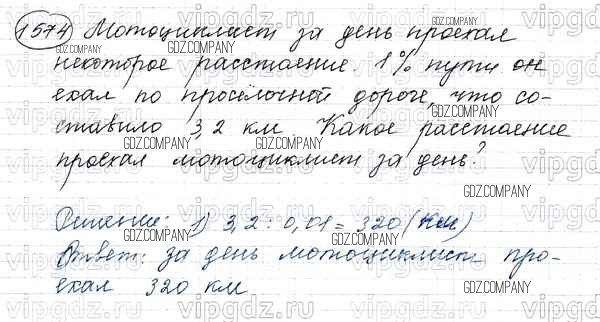 1574 Мотоциклист за день проехал
некоторое расстояние. 1% пути он
ехал по просёлочной дороге, что со-
ставило 3,2 км. Какое расстояние
проехал мотоциклист за день?
Решение: 1) 3,2 : 0,01 = 320 (км)
Ответ: за день мотоциклист про-
ехал 320 км